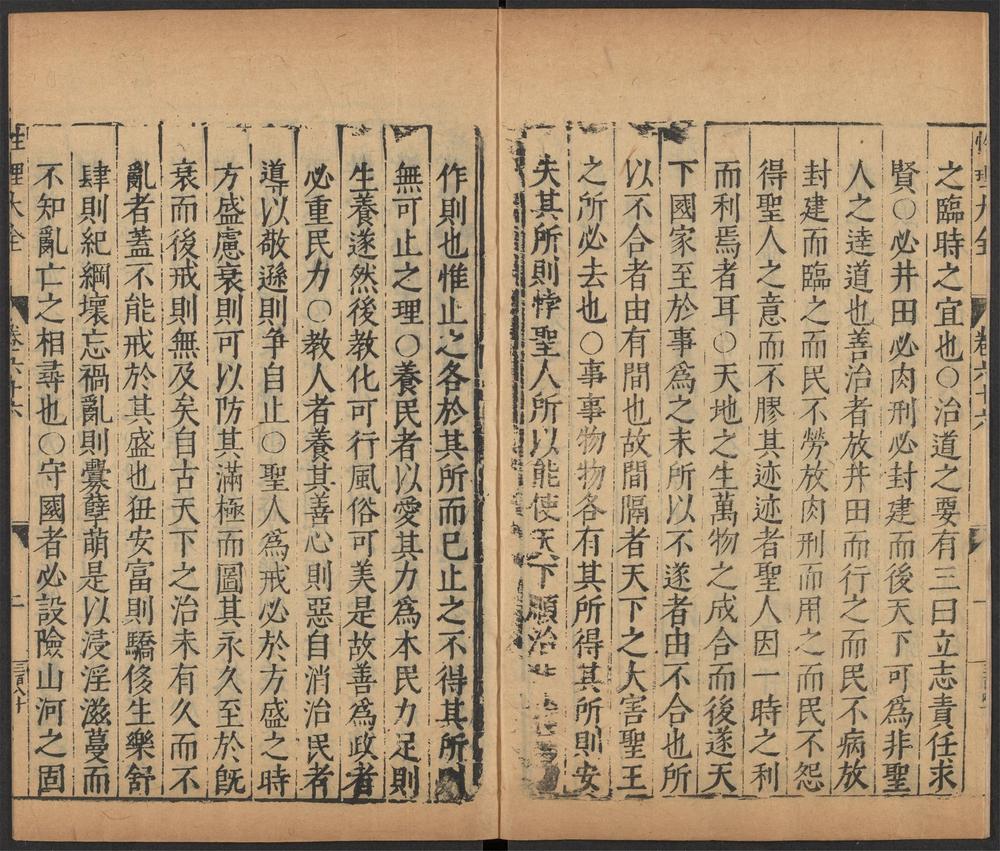 之臨時之宜也○治道之要有三曰立志責任求
賢○必井田必肉刑必封建而後天下可爲非聖
人之達道也善治者放井田而行之而民不病放
封建而臨之而民不勞放肉刑而用之而民不怨
得聖人之意而不膠其迹迹者聖人因一時之利
而利焉者耳○天地之生萬物之成合而後遂天
下國家至於事爲之末所以不遂者由不合也所
以不合者由有間也故間隔者天下之大害聖王
之所必去也○事事物物各有其所得其所則安
失其所則悖聖人所以能使天下順治
卷六十六
作則也惟止之各於其所而已止之不得其所則
無可止之理○養民者以愛其力爲本民力足則
生養遂然後教化可行風俗可美是故善爲政者
必重民力○教人者養其善心則惡自消治民者
導以敬遜則争自止○聖人爲戒必於方盛之時
方盛慮衰則可以防其滿極而圖其永久至於旣
衰而後戒則無及矣自古天下之治未有久而不
亂者蓋不能戒於其盛也狃安富則驕侈生樂舒
肆則紀綱壞忘禍亂則釁孽萌是以浸淫滋蔓而
不知亂亡之相尋也○守國者必設險山河之固
性理大全 卷六十六 二